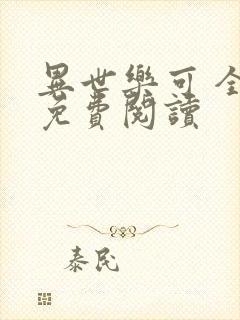 異世樂可全
免費閱讀
泰民